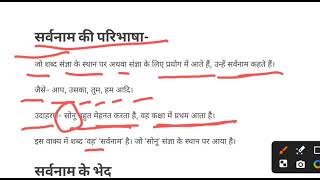 सर्वनाम की परिभाषा-
जो शब्द संज्ञा के स्थान पर अथवा संज्ञा के लिए प्रयोग में आते हैं, उन्हें सर्वनाम कहते हैं।
जैसे- आप, उसका, तुम, हम आदि।
उदाहरण- सोनू बहुत मेहनत करता है, वह कक्षा में प्रथम आता है।
इस वाक्य में शब्द 'वह' 'सर्वनाम' है। जो 'सोनू' संज्ञा के स्थान पर आया है।
सर्वनाम के भेद